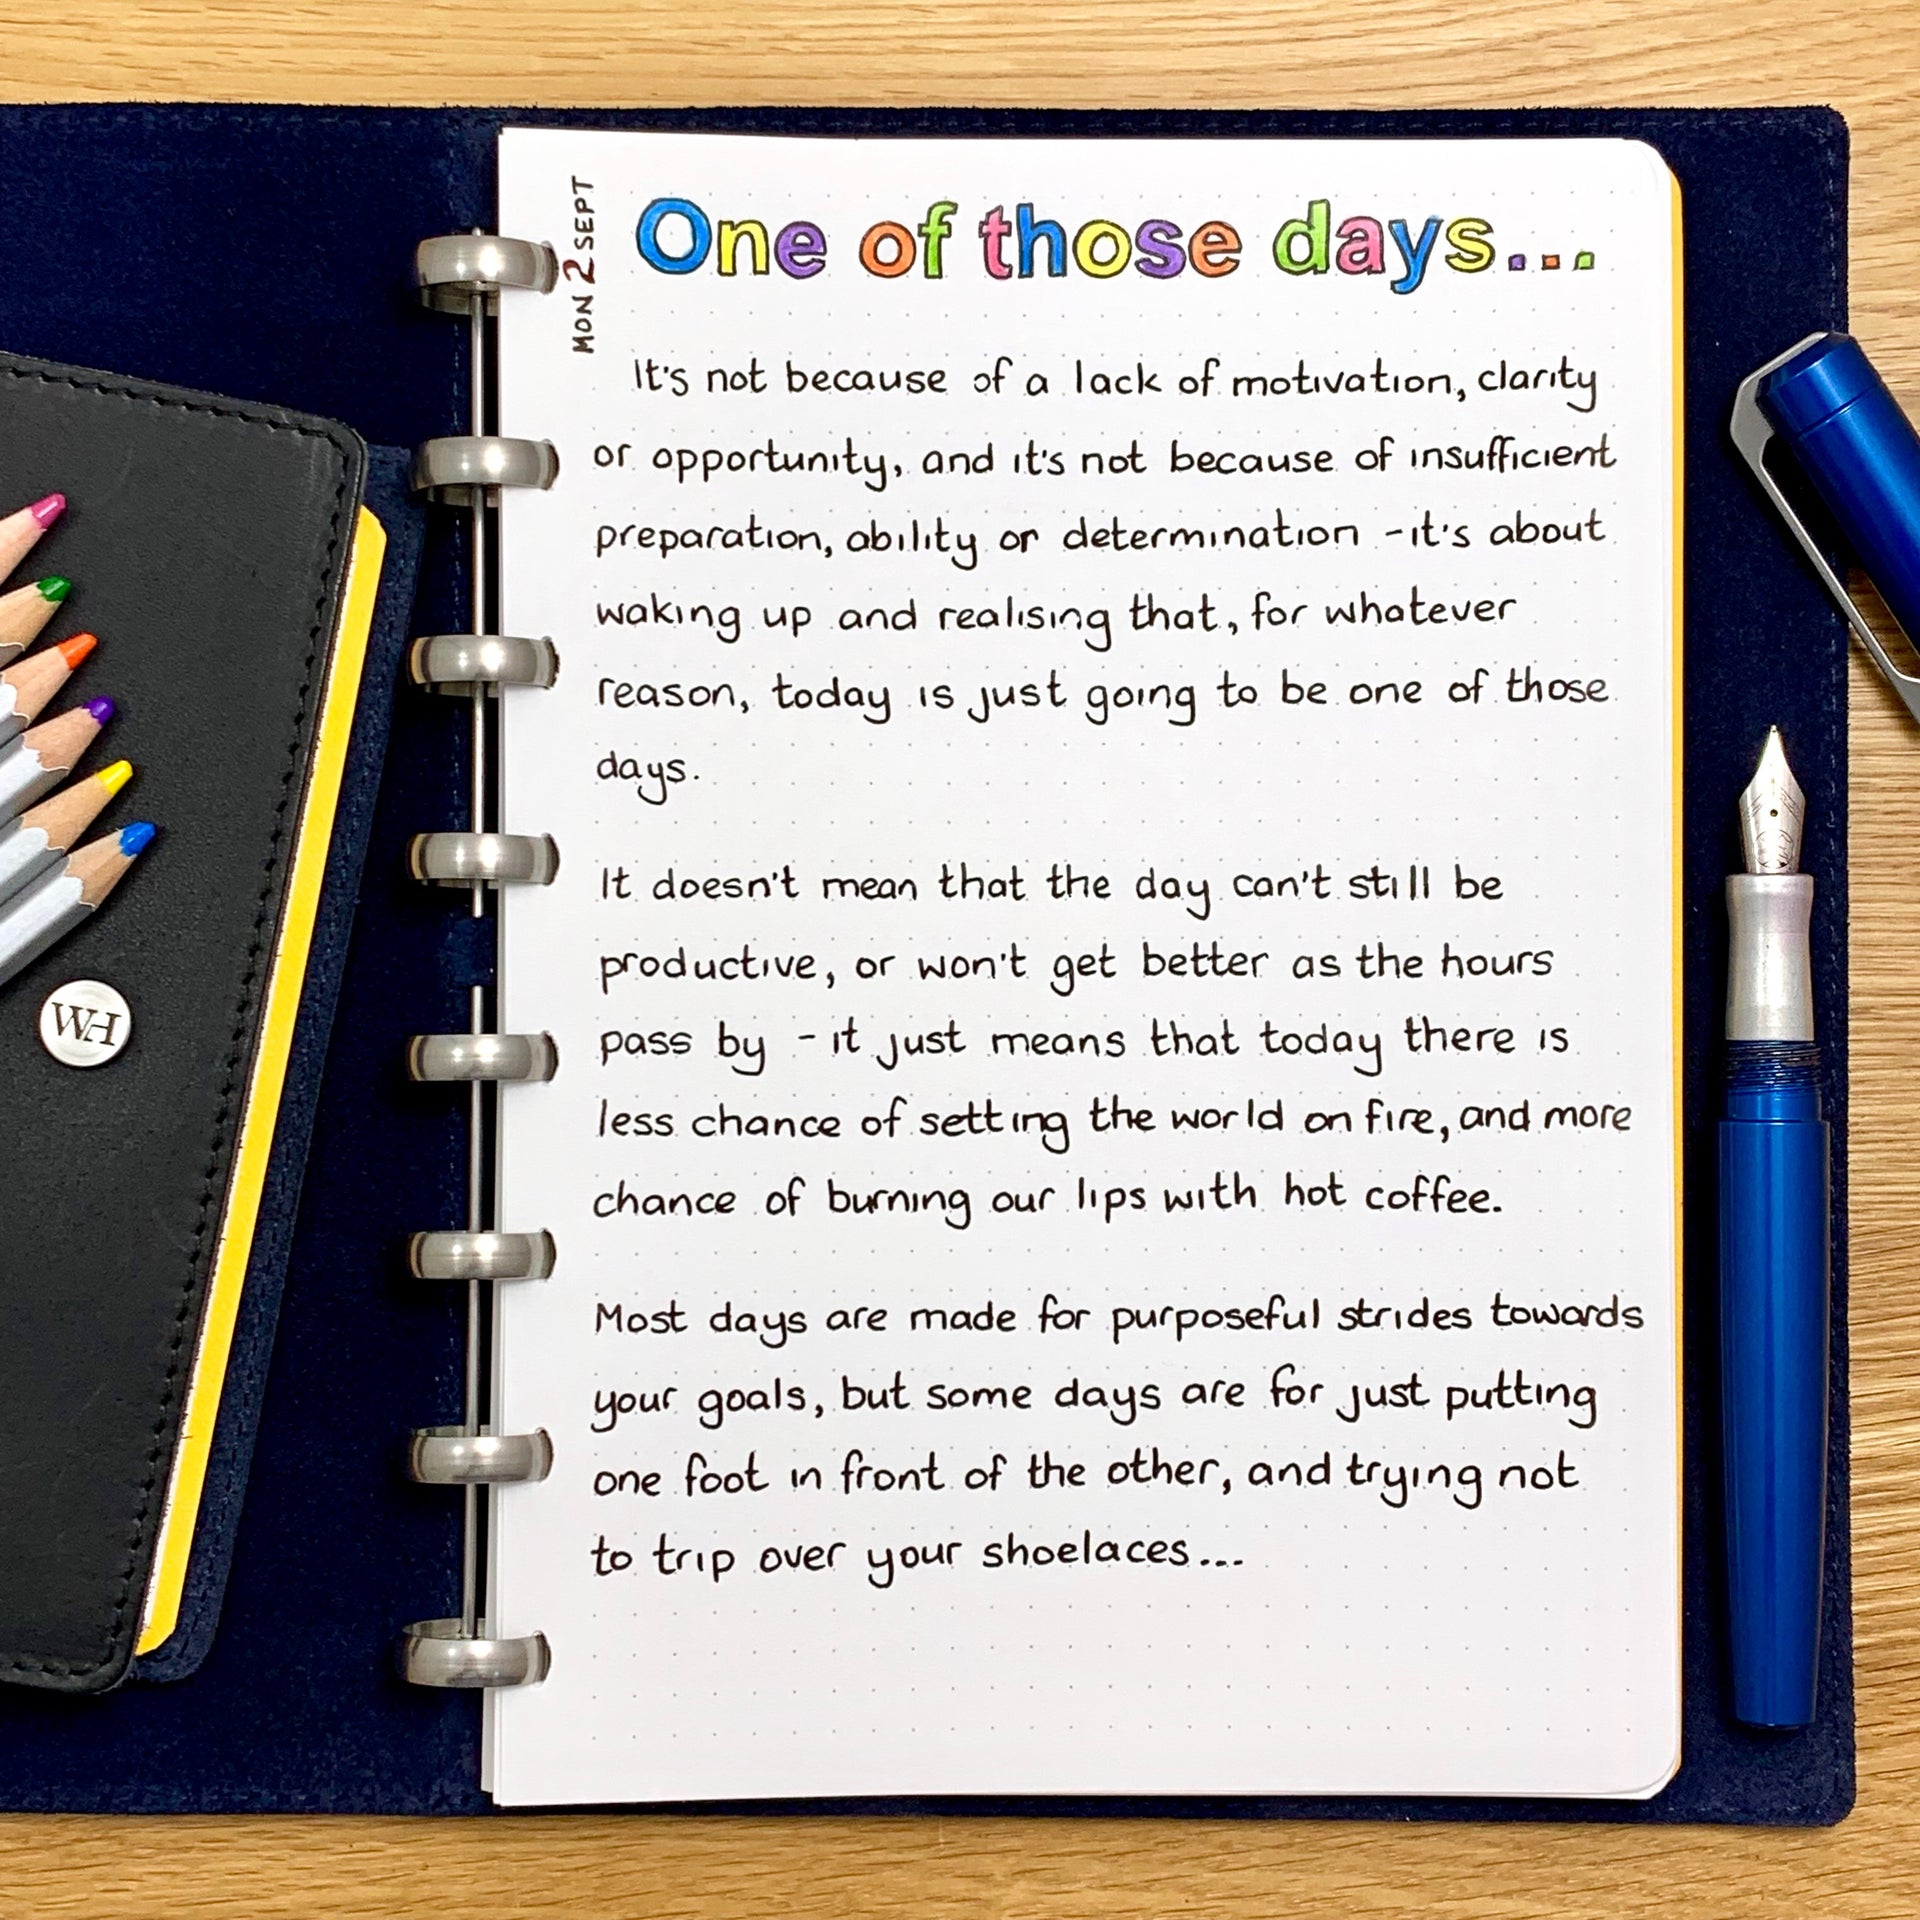 MON 2 SEPT
One of those days...
It's not because of a lack of motivation, clarity
or opportunity, and it's not because of insufficient
preparation, ability or determination - it's about
waking up and realising that, for whatever
reason, today is just going to be one of those
days.
It doesn't mean that the day can't still be
productive, or won't get better as the hours
pass by - it just means that today there is
less chance of setting the world on fire, and more
chance of burning our lips with hot coffee.
Most days are made for purposeful strides towards
your goals, but some days are for just putting
one foot in front of the other, and trying not
to trip over your shoelaces...
WH